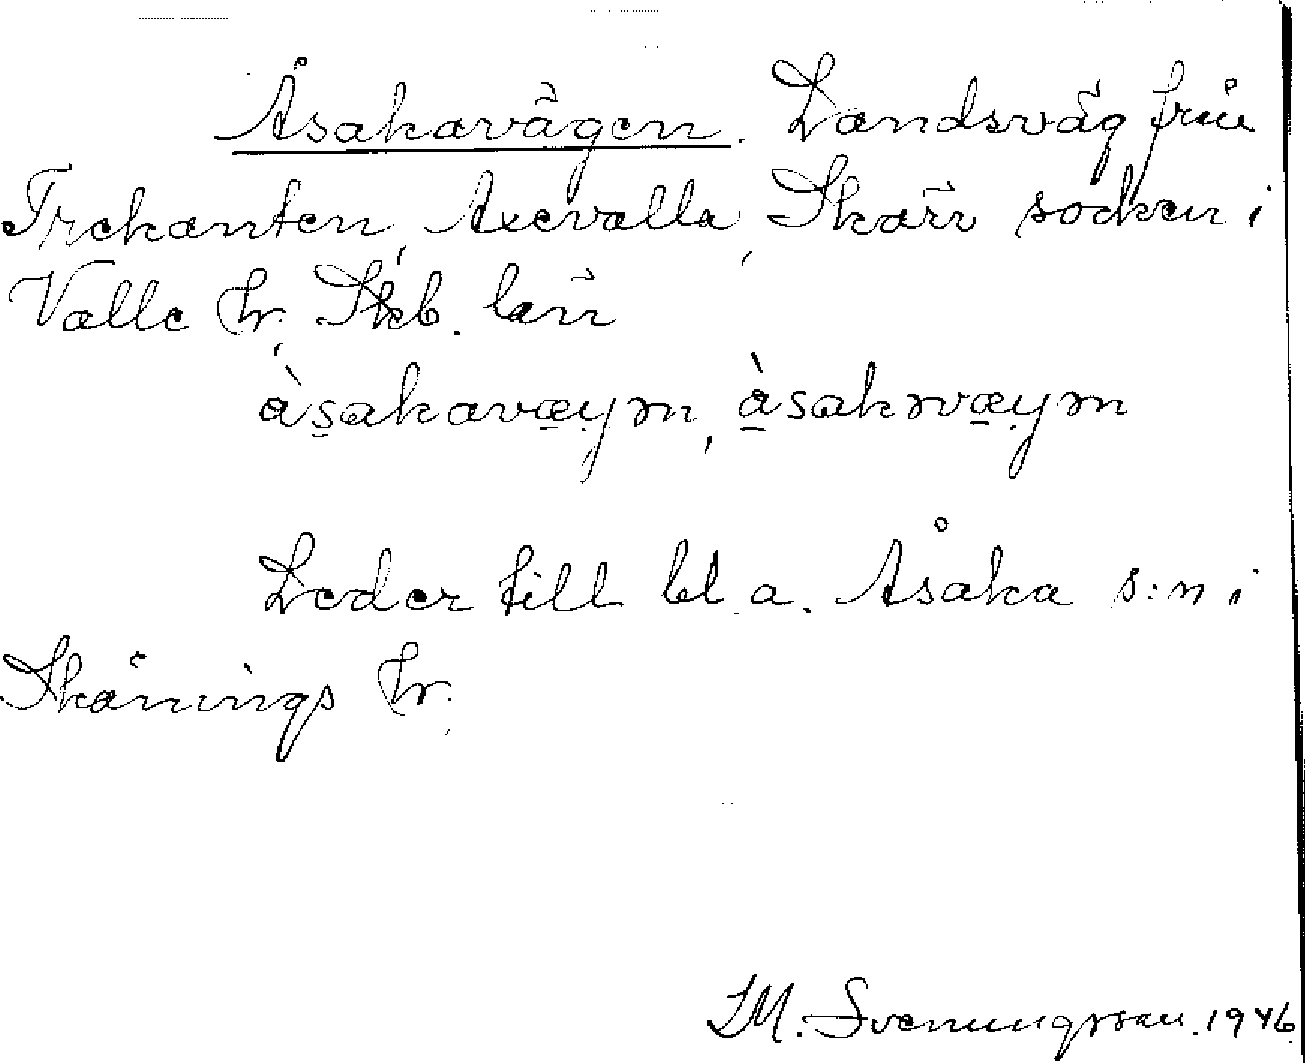 Åsakavägen. Landsväg från
Trekanten, Axevalla, Skärv socken i
Valle hr, Skb. län
àsakavæyɱ, àsakrvæyɱ
Leder till bl. a. Åsaka s:n i
Skånings hr.
I.M. Svenungsson. 1946